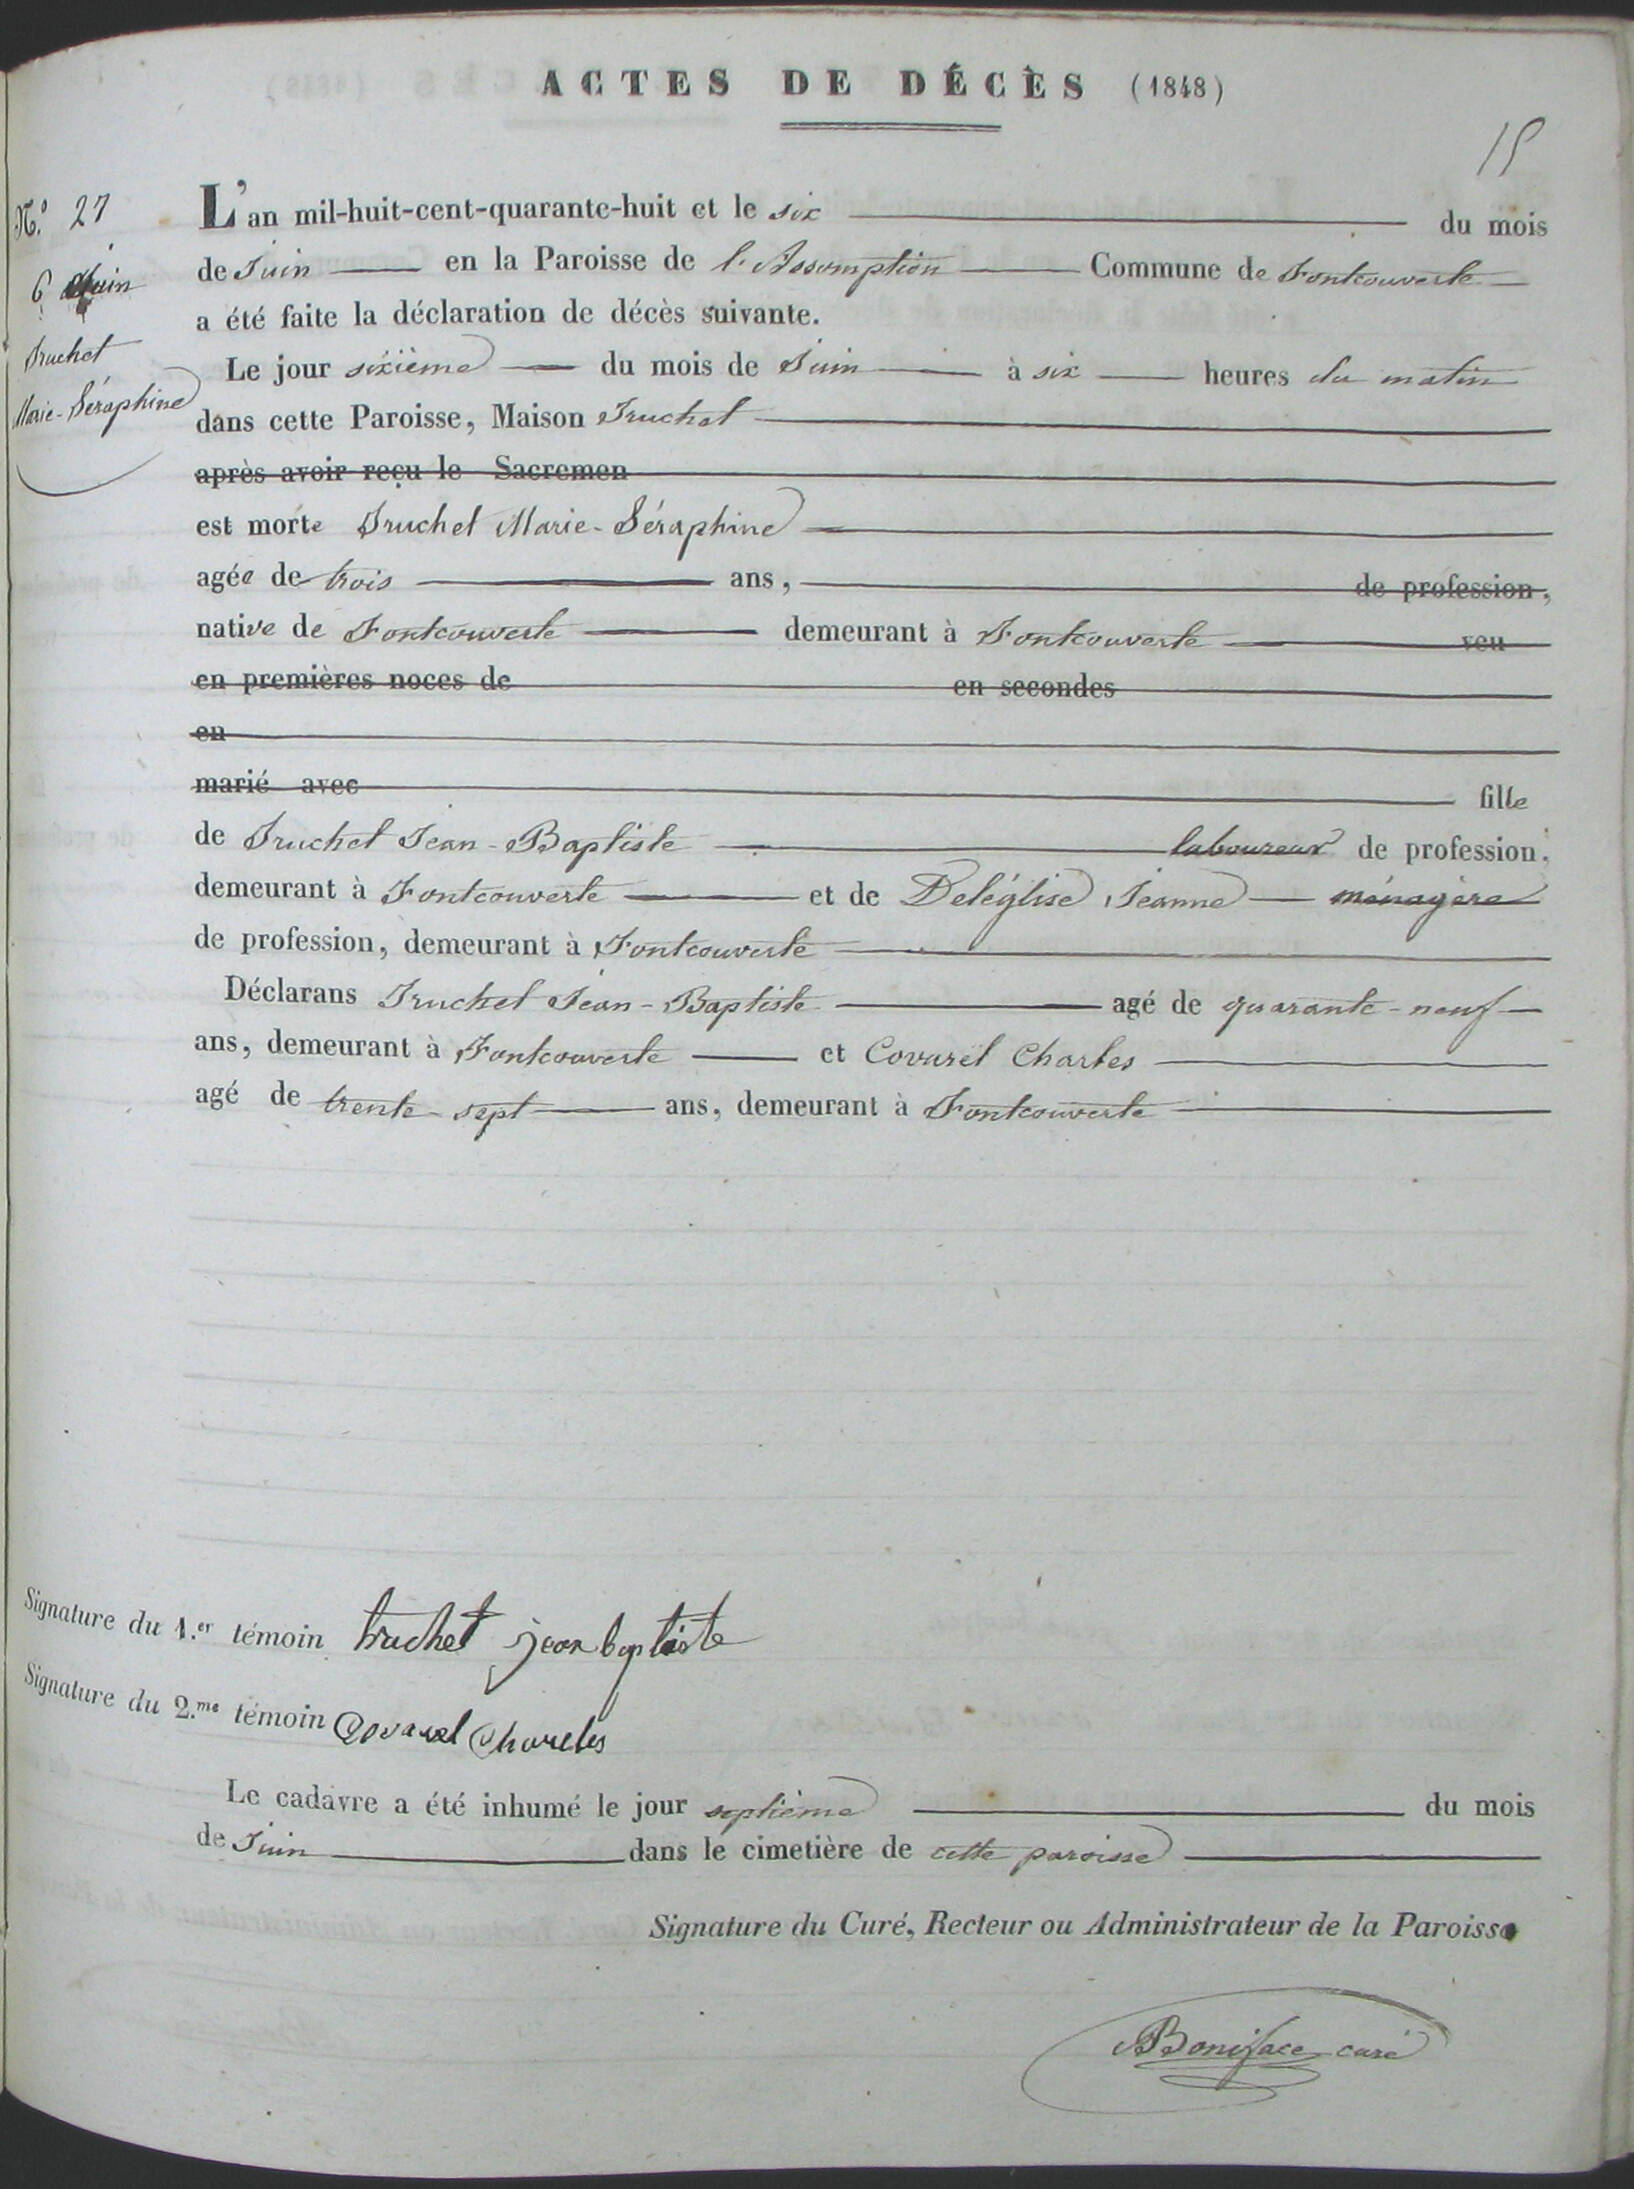 ACTES DE DÉCÈS (1848)
15
N.° 27
6 Juin
Truchet
Marie-Séraphine
L'an mil-huit-cent-quarante-huit et le six du mois
de Juin en la Paroisse de l'Assomption Commune de Fontcouverte
a été faite la déclaration de décès suivante.
Le jour sixième du mois de Juin à six heures du matin
dans cette Paroisse, Maison Truchet
après avoir reçu le Sacremen
est morte Truchet Marie-Séraphine
agée de trois ans, de profession,
native de Fontcouverte demeurant à Fontcouverte veu
en premières noces de en secondes
en
marié avec fille
de Truchet Jean-Baptiste laboureur de profession,
demeurant à Fontcouverte et de Deléglise Jeanne ménagère
de profession, demeurant à Fontcouverte
Déclarans Truchet Jean-Baptiste agé de quarante-neuf
ans, demeurant à Fontcouverte et Covarel Charles
agé de trente-sept ans, demeurant à Fontcouverte
Signature du 1.er témoin truchet jean baptiste
Signature du 2.me témoin Covarel Charles
Le cadavre a été inhumé le jour septième du mois
de Juin dans le cimetière de cette paroisse
Signature du Curé, Recteur ou Administrateur de la Paroisse
Boniface curé